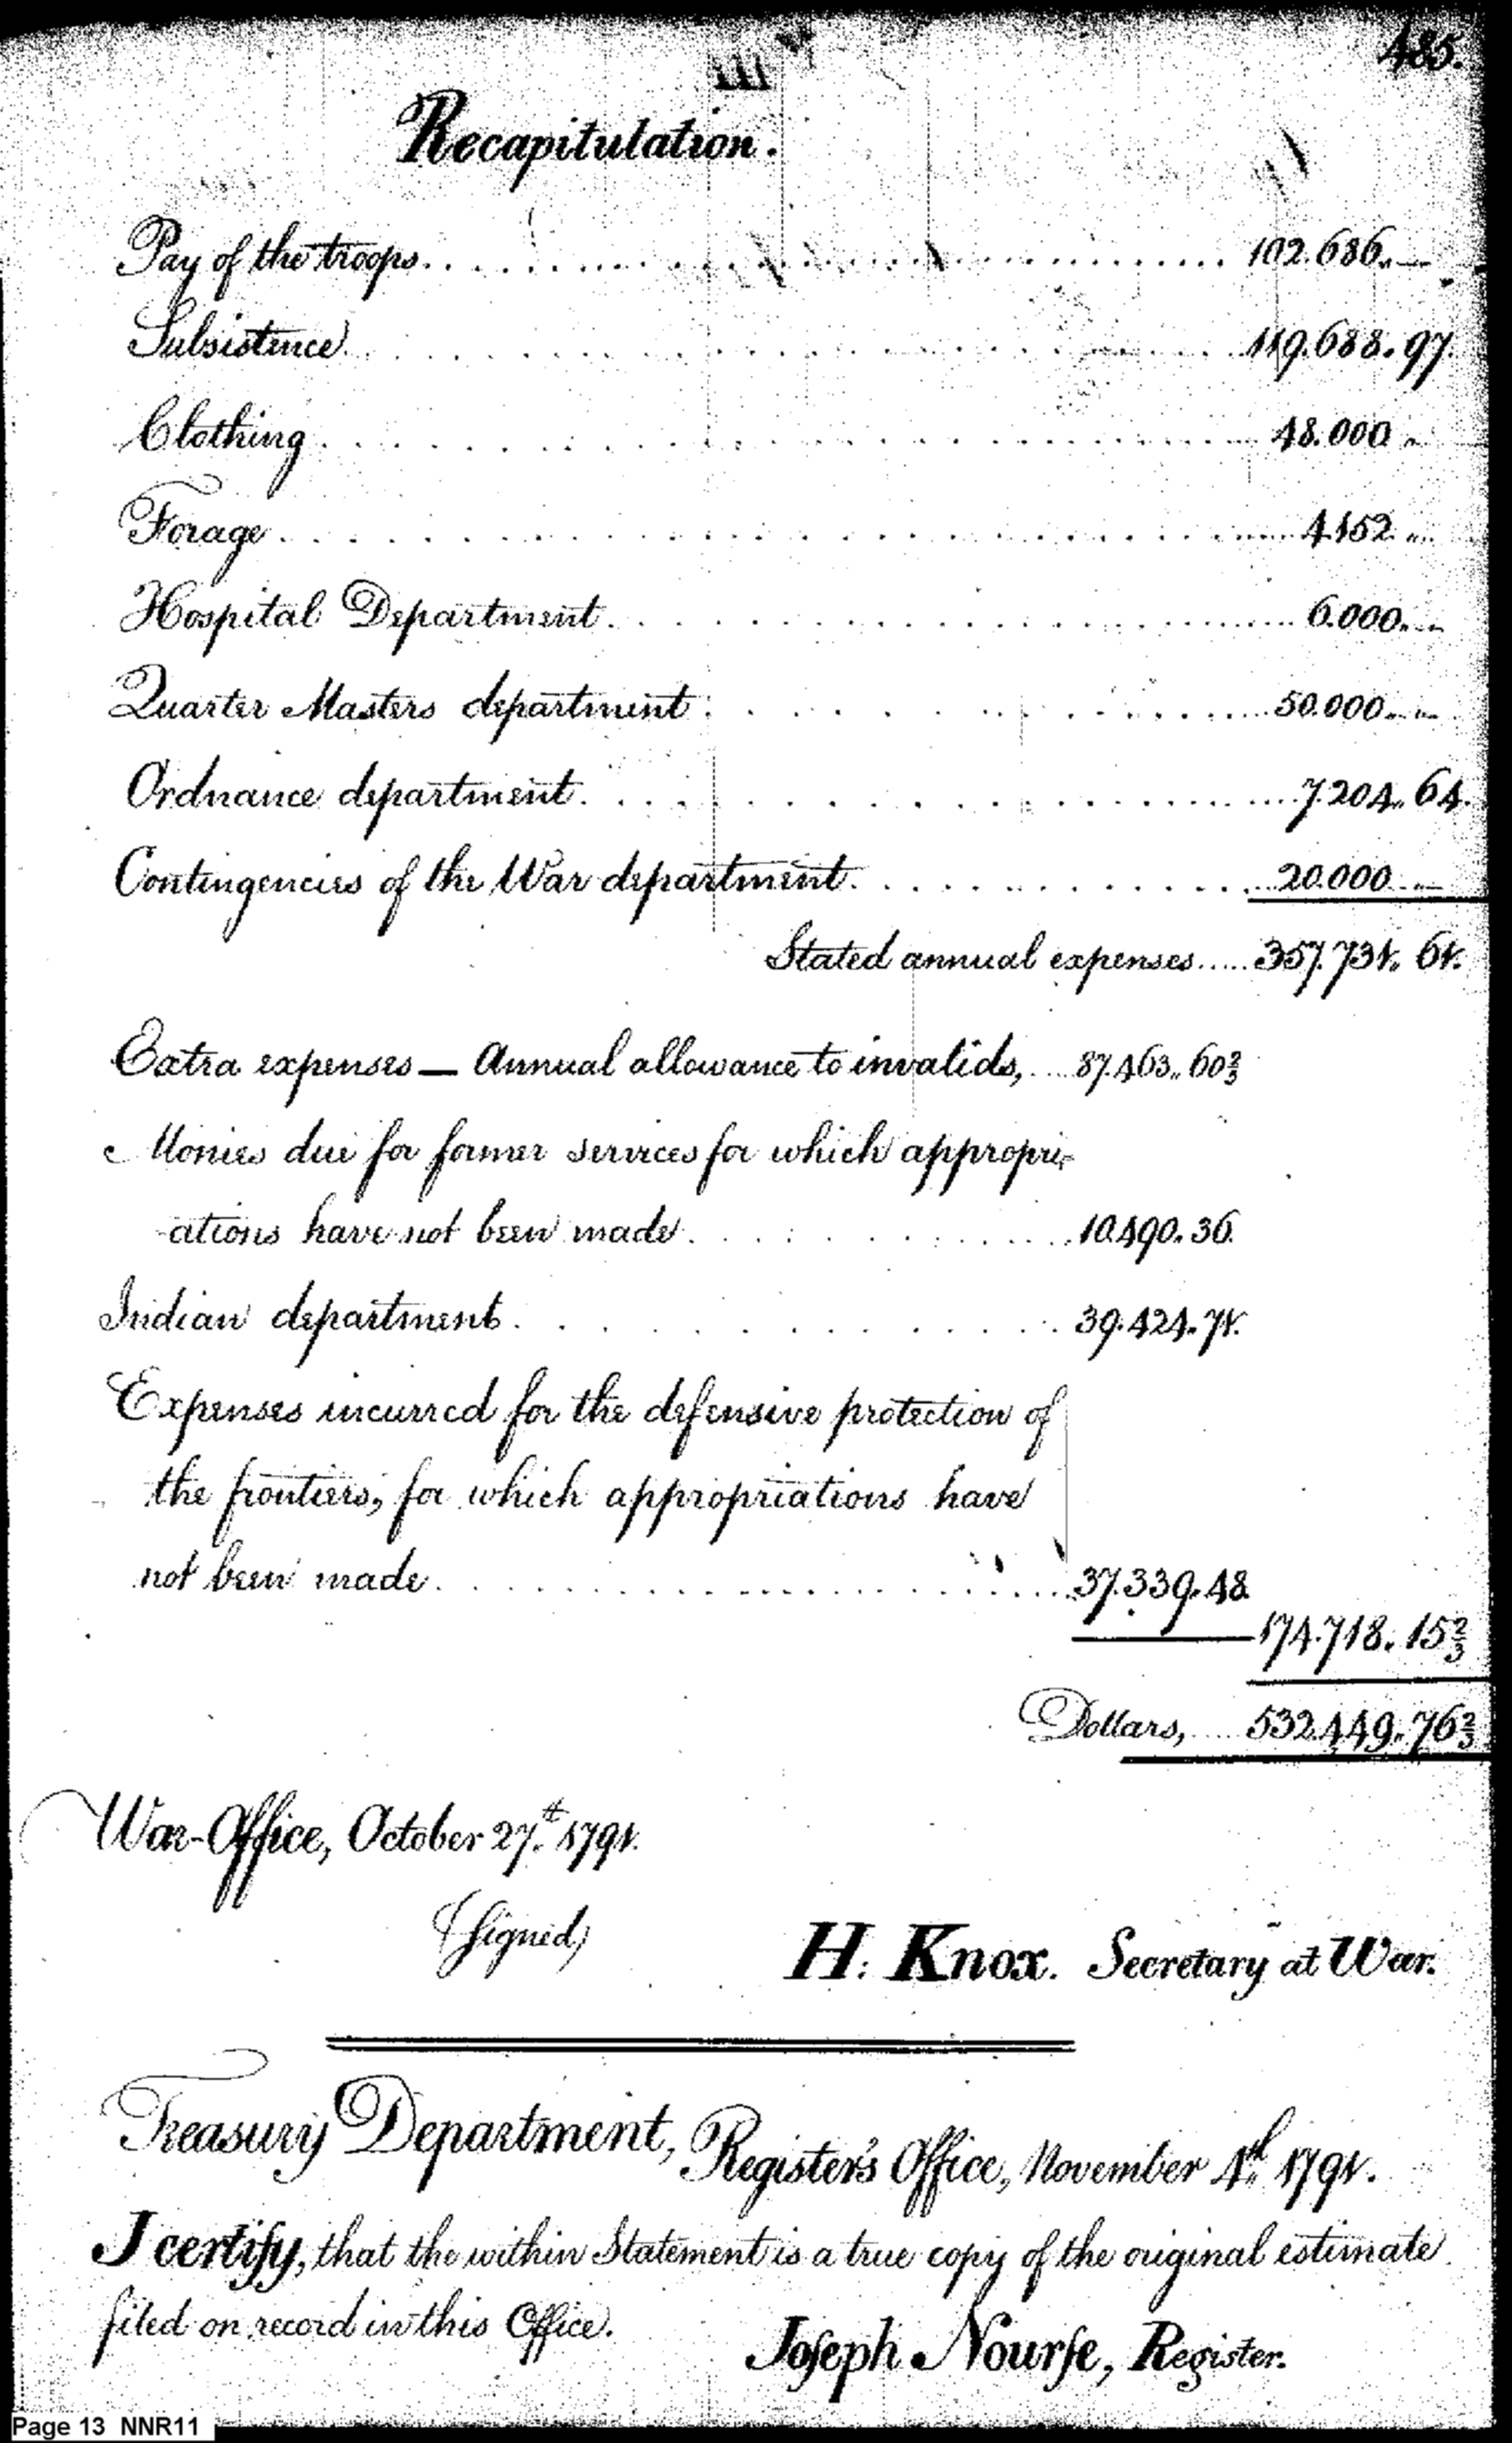 485.
Recapitulation.
Pay of the troops. . . . . . . . . . 102.686.. —
Subsistence. . . . . . . . . . 119.688. 97.
Clothing . . . . . . . . . . 48.000 ..
Forage . . . . . . . . . . 4.152 ..
Hospital Department. . . . . . . . . . 6.000. ..
Quarter Masters department . . . . . . . . . . 50.000. ..
Ordnance department. . . . . . . . . . 7.204.. 64.
Contingencies of the War department. . . . . . . . . . 20.000 ..
Stated annual expenses..... 357.731. 61.
Extra expenses — Annual allowance to invalids, .... 87.463.. 60⅔
Monies due for former services for which appropri-
ations have not been made. . . . . . . . . . 10.490. 36.
Indian department. . . . . . . . . . 39.424. 71.
Expenses incurred for the defensive protection of
the frontiers, for which appropriations have
not been made. . . . . . . . . . 37.339. 48.
174.718. 15⅔
Dollars, ..... 532.449. 76⅔
War-Office, October 27.th 1791.
(Signed) H. Knox. Secretary at War.
Treasury Department, Register's Office, November 4th 1791.
I certify, that the within Statement is a true copy of the original estimate
filed on record in this Office.
Joseph Nourse, Register.
Page 13 NNR11